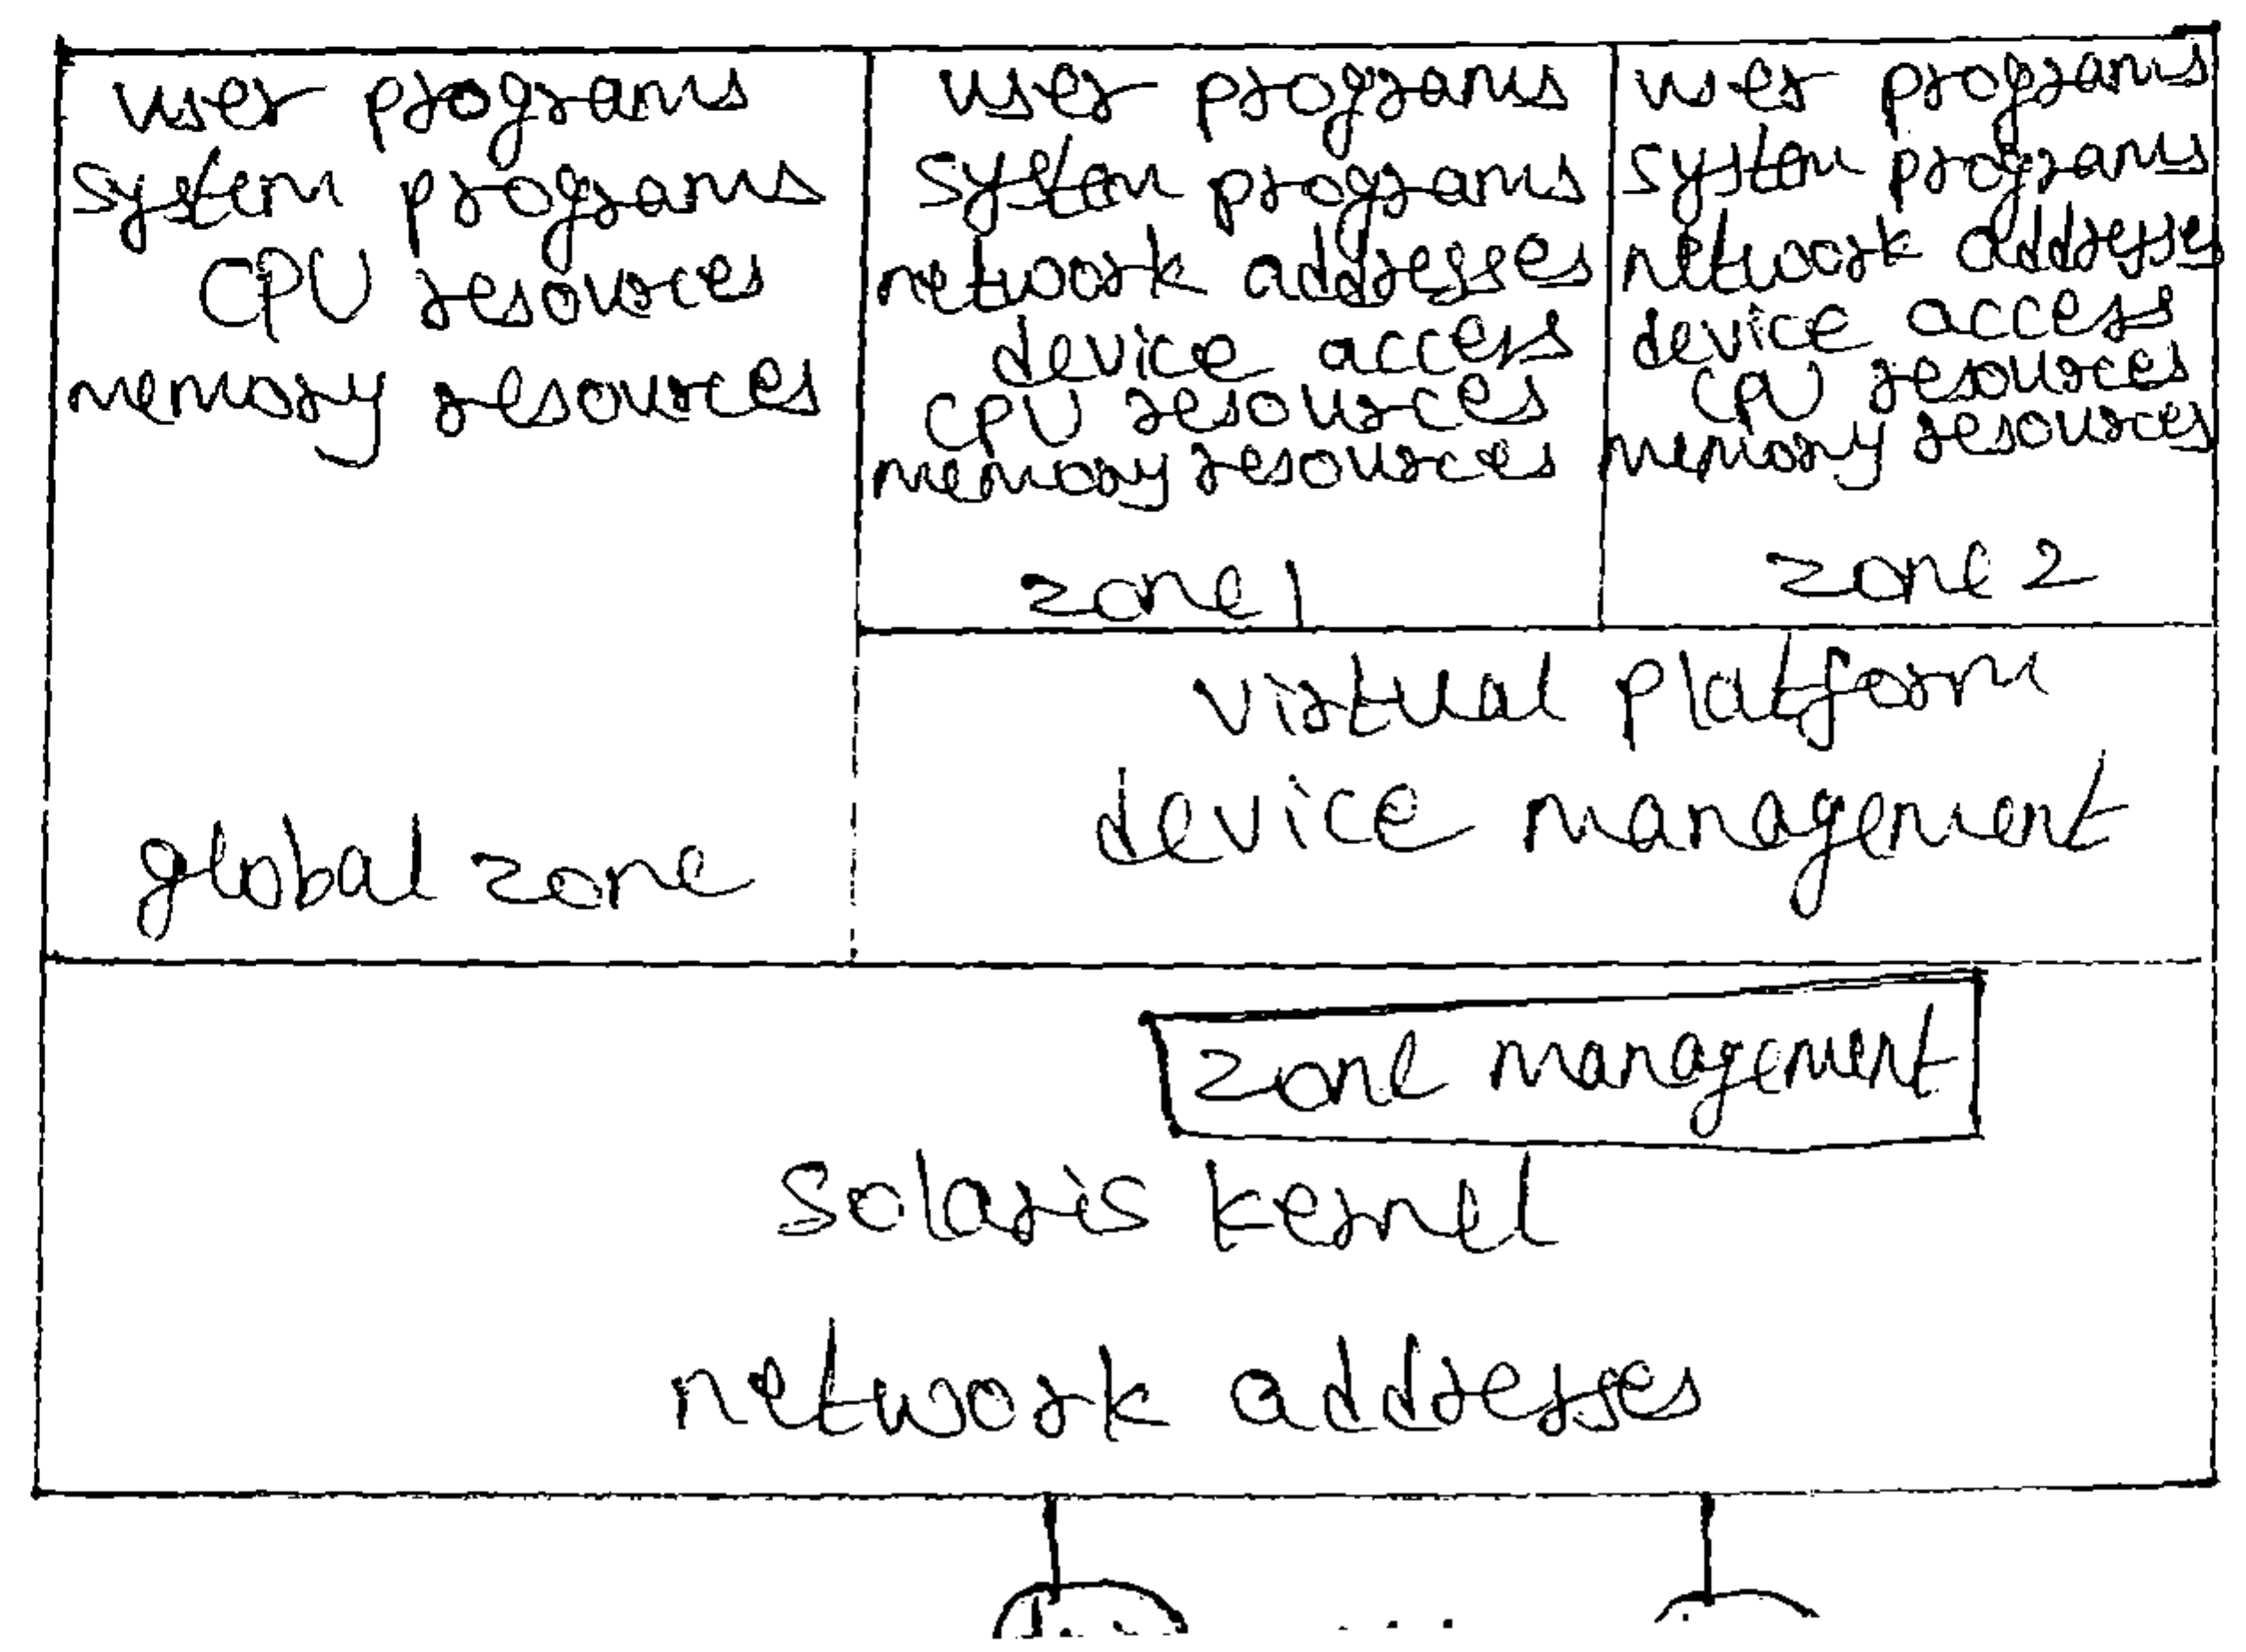 user programs
system programs
CPU resources
memory resources
global zone
user programs
system programs
network addresses
device access
CPU resources
memory resources
zone 1
user programs
system programs
network addresses
device access
CPU resources
memory resources
zone 2
virtual platform
device management
zone management
solaris kernel
network addresses